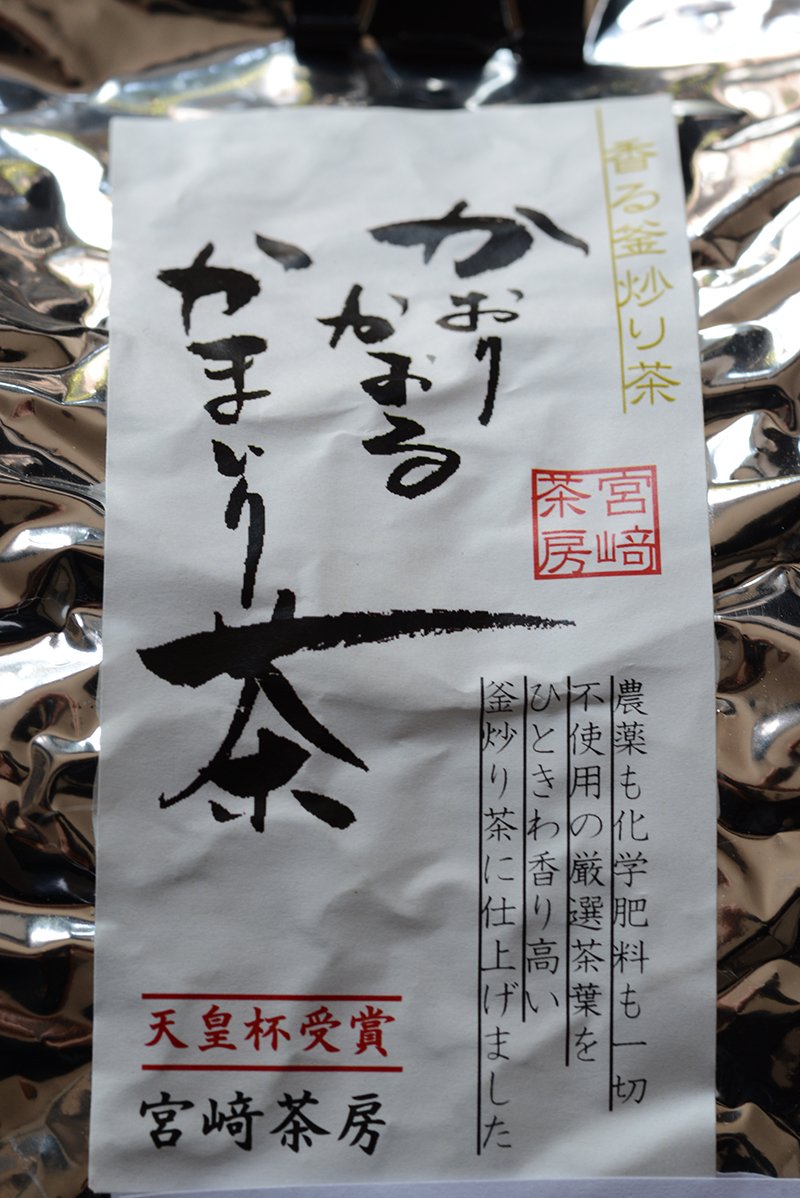 香る釜炒り茶
かおり
かおる
かまいり茶
宮﨑
茶房
農薬も化学肥料も一切
不使用の厳選茶葉を
ひときわ香り高い
釜炒り茶に仕上げました
天皇杯受賞
宮﨑茶房